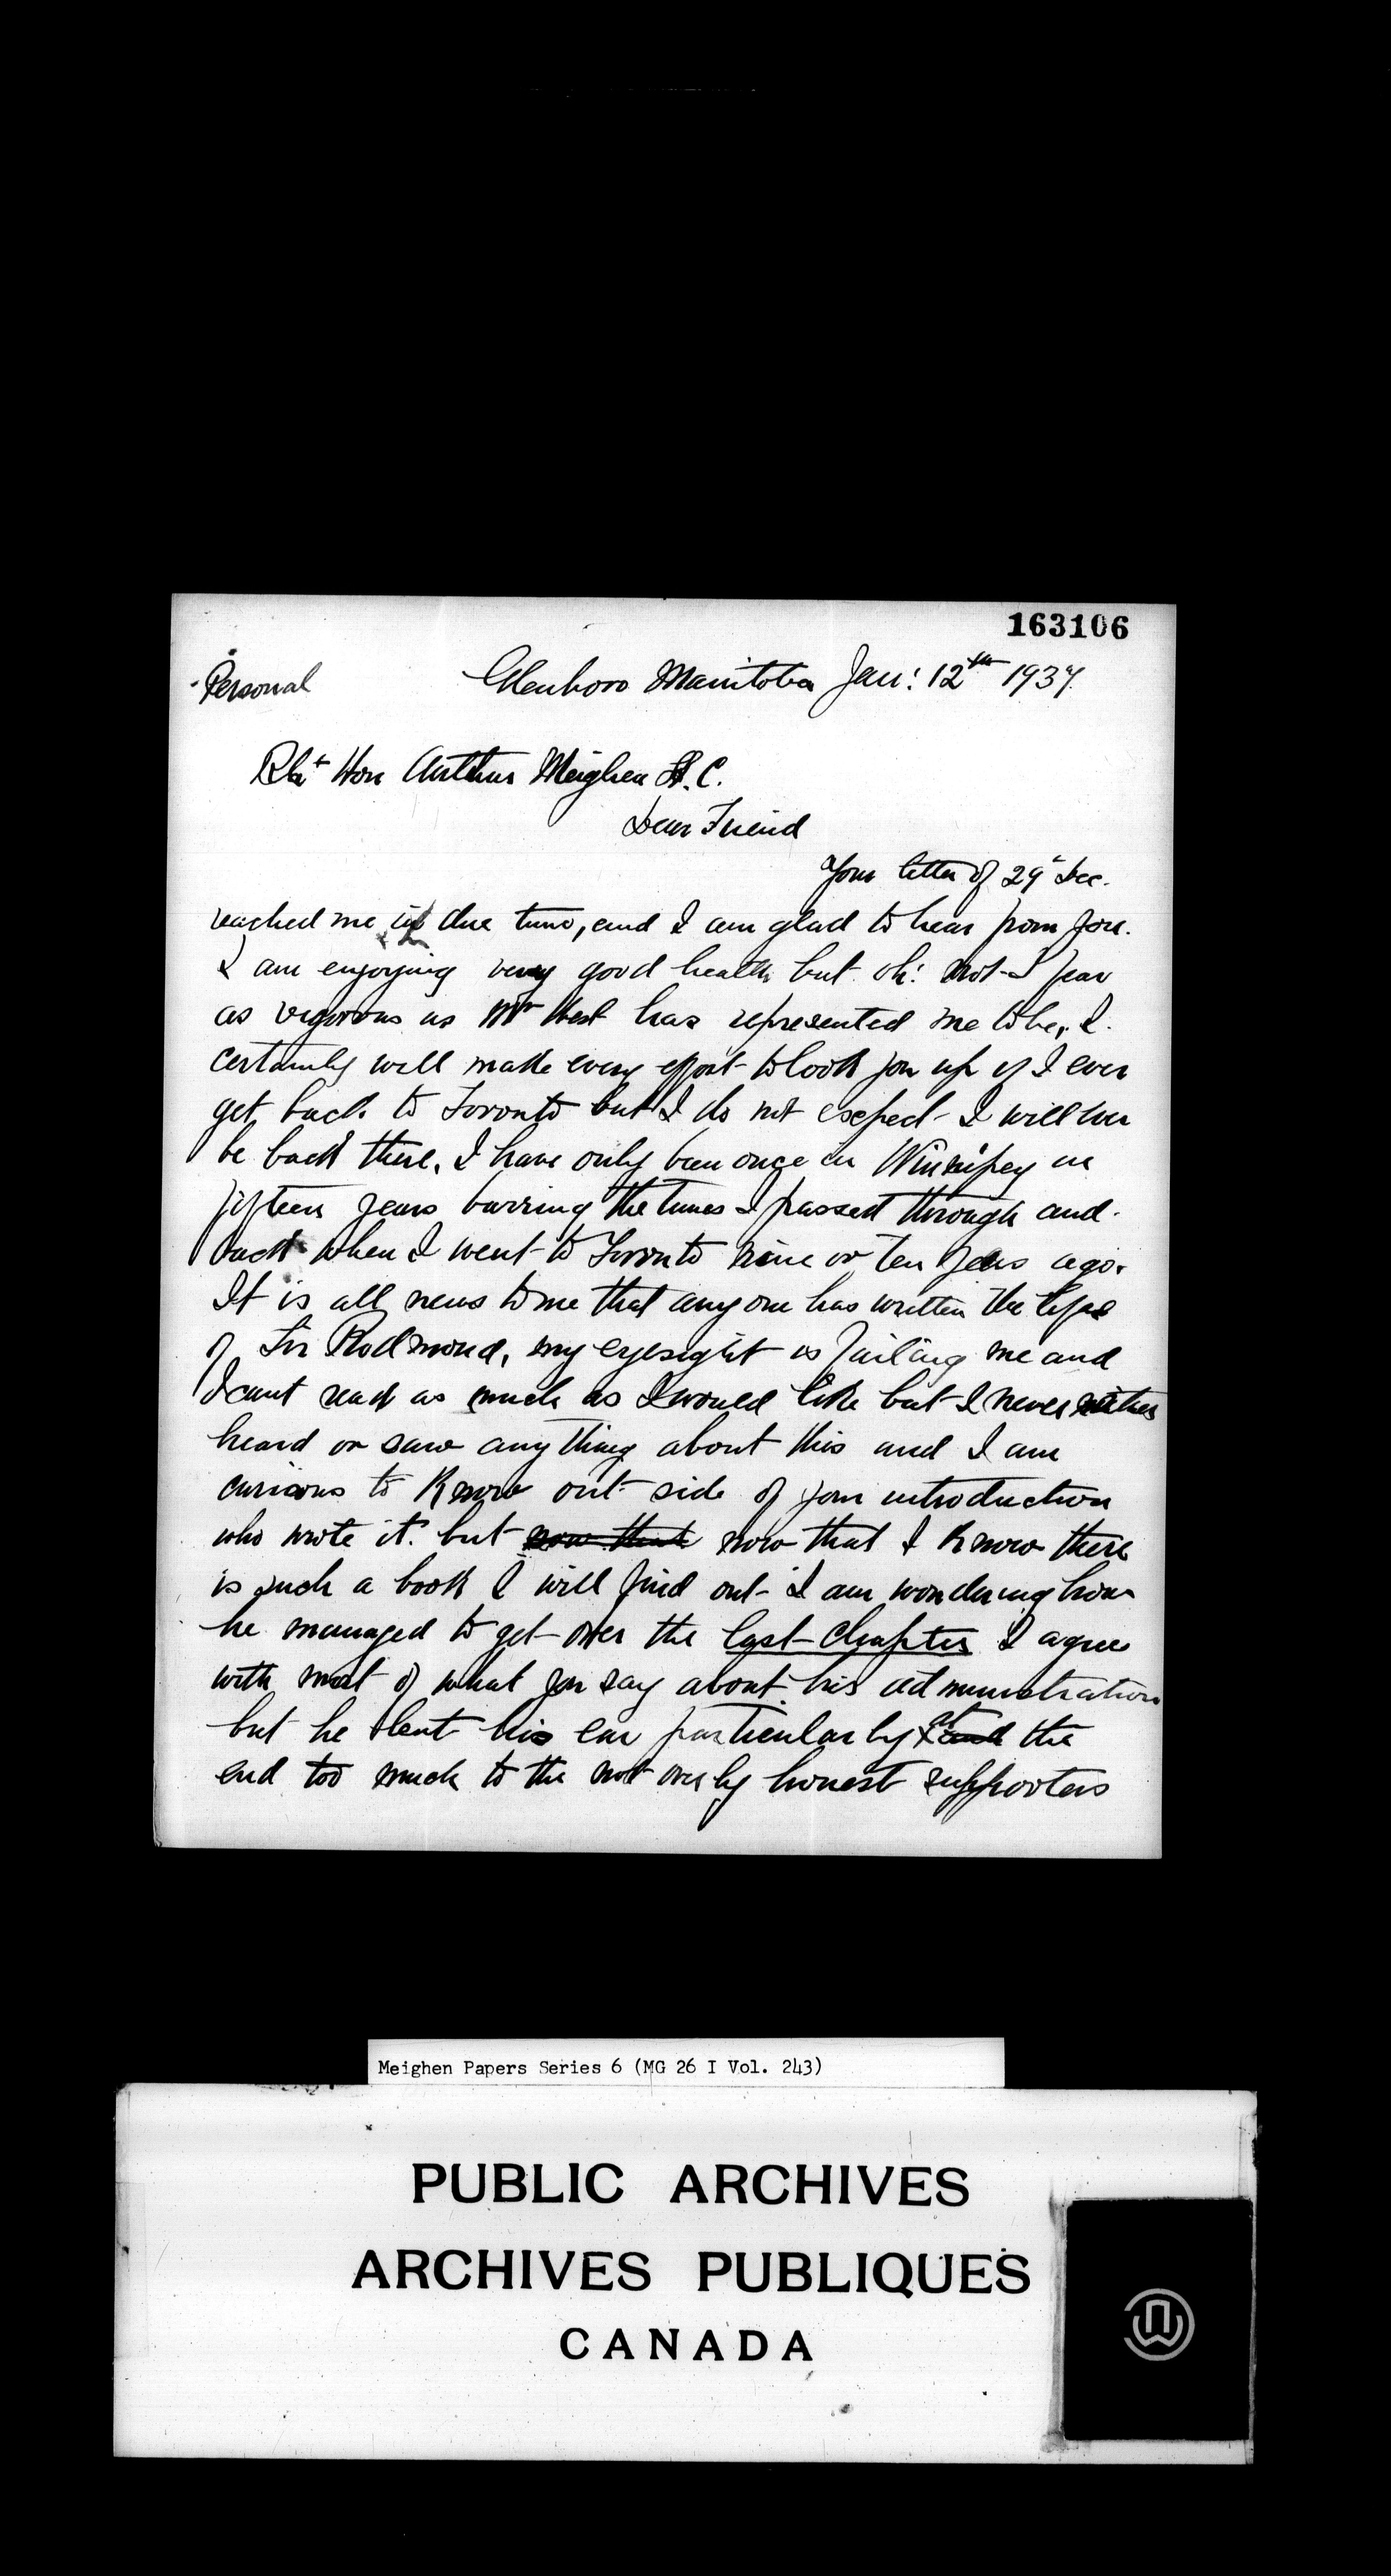 163106
Personal Glenboro Manitoba Jan: 12th 1937
Rht Hon Arthur Meighen P.C.
Dear Friend
Your letter of 29" Dec.
reached me in due time, and I am glad to hear from you.
I am enjoying very good health but oh! not I fear
as vigorous as Mr West has represented me to be, I
certainly will make every effort to look you up if I ever
get back to Toronto but I do not expect I will ever
be back there. I have only been once in Winnipeg in
fifteen years barring the times I passed through and
back when I went to Toronto nine or ten years ago.
It is all news to me that any one has written the life
of Sir Rodmond, my eyesight is failing me and
I cant read as much as I would like but I never either
heard or saw any thing about this and I am
curious to know out side of your introduction
who wrote it. but now that now that I know there
is such a book I will find out I am wondering how
he managed to get over the last chapter I agree
with most of what you say about his administration
but he lent his ear particularly at the
end too much to the not overly honest supporters
Meighen Papers Series 6 (MG 26 I Vol. 243)
PUBLIC ARCHIVES
ARCHIVES PUBLIQUES
CANADA